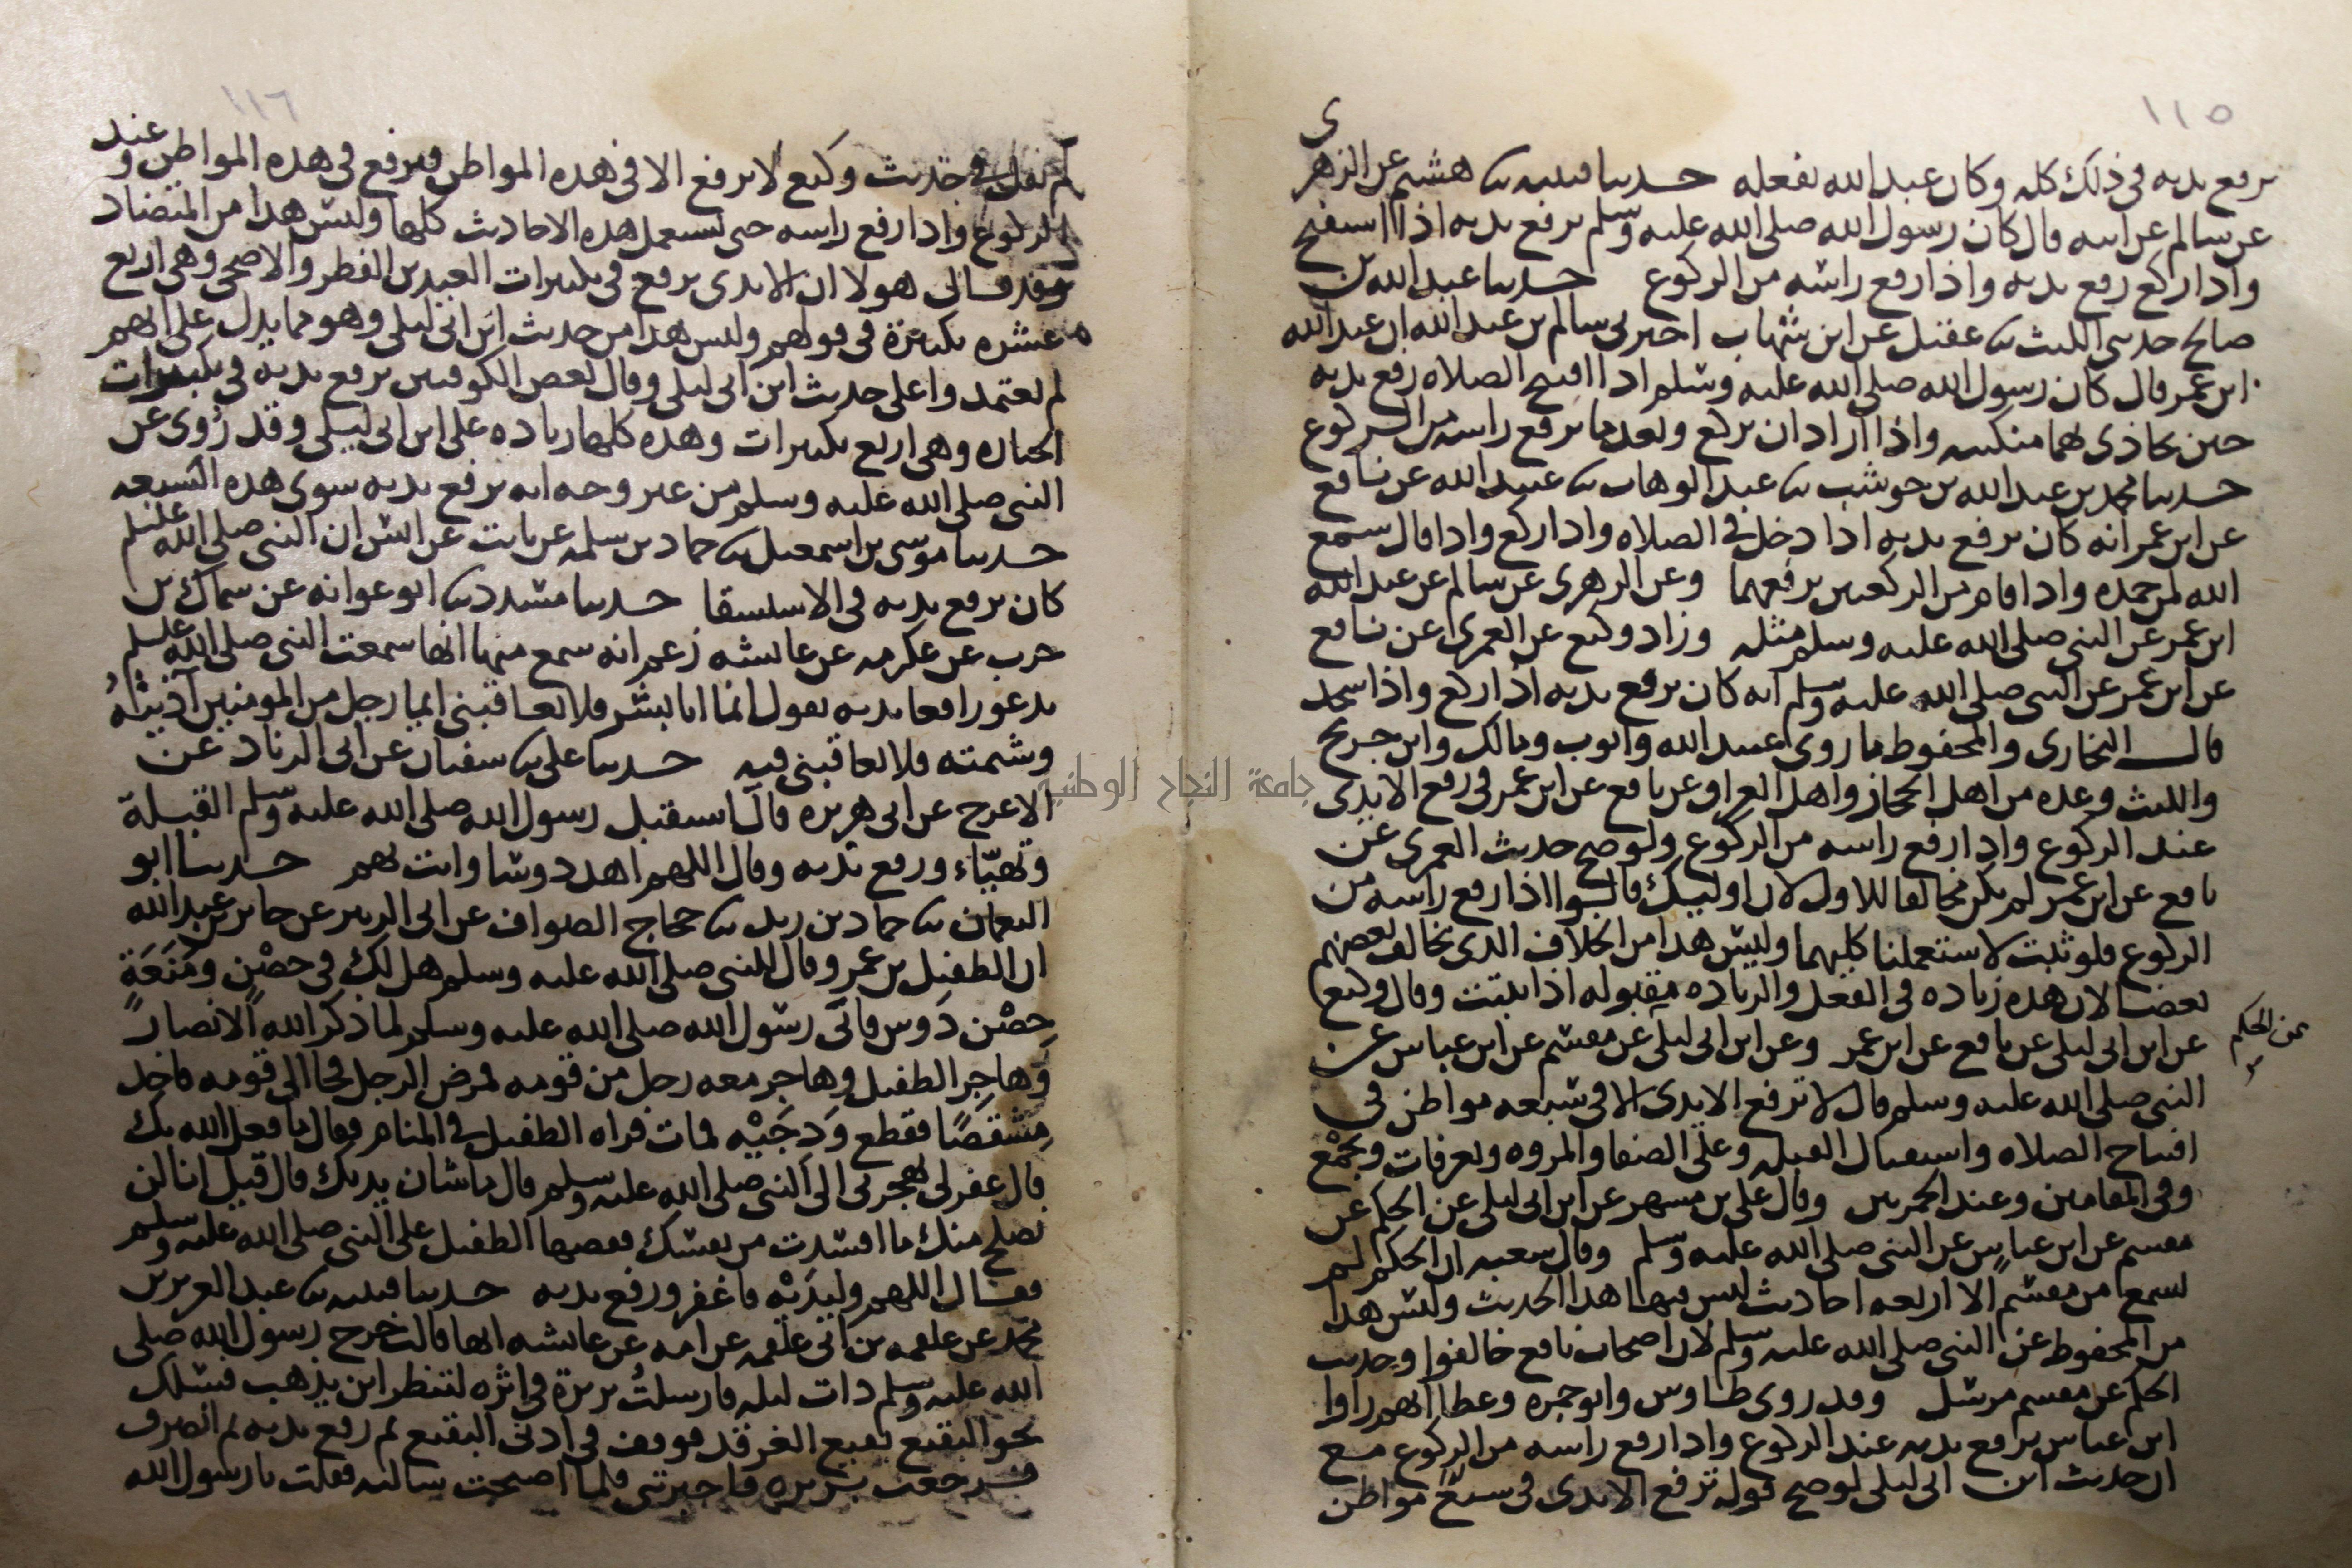 ١١٥
يرفع يديه في ذلك كله وكان عبد الله يفعله حدثنا قتيبه ثنا هشيم عن الزهري
عن سالم عن ابيه قال كان رسول الله صلى الله عليه وسلم يرفع يديه اذا استفتح
واذا ركع رفع يديه واذا رفع راسه من الركوع حدثنا عبد الله بن
صالح حدثني الليث ثنا عقيل عن ابن شهاب اخبرني سالم بن عبد الله ان عبد الله
ابن عمر قال كان رسول الله صلى الله عليه وسلم اذا افتتح الصلاه رفع يديه
حين يحاذى بهما منكبيه واذا اراد ان يركع وبعد ما يرفع راسه من الركوع
حدثنا محمد بن عبد الله بن حوشب ثنا عبد الوهاب ثنا عبيد الله عن نافع
عن ابن عمر انه كان يرفع يديه اذا دخل في الصلاه واذا ركع واذا قال سمع
الله لمن حمده واذا قام من الركعتين يرفعهما وعن الزهري عن سالم عن عبد الله
ابن عمر عن النبي صلى الله عليه وسلم مثله وزاد وكيع عن العمري عن نافع
عن ابن عمر عن النبي صلى الله عليه وسلم انه كان يرفع يديه اذا ركع واذا سجد
قال البخاري والمحفوظ ما روى عبيد الله وايوب ومالك وابن جريج
والليث وعده من اهل الحجاز واهل العراق عن نافع عن ابن عمر في رفع الايدي
عند الركوع واذا رفع راسه من الركوع ولو صح حديث العمري عن
نافع عن ابن عمر لم يكن مخالفا للاول لان اوليك قالوا اذا رفع راسه من
الركوع فلو ثبت لاستعملنا كليهما وليس هذا من الخلاف الذي يخالف بعضهم
بعضا لان هذه زياده في الفعل والزياده مقبوله اذا ثبتت وقال وكيع
عن ابن ابي ليلى عن نافع عن ابن عمر وعن ابن ابي ليلى عن مقسم عن ابن عباس عن
عن الحكم
النبي صلى الله عليه وسلم قال لا ترفع الايدي الا في سبعه مواطن في
افتتاح الصلاه واستقبال القبله وعلى الصفا والمروه وبعرفات وبجمع
وفي المقامين وعند الجمرتين وقال علي بن مسهر عن ابن ابي ليلى عن الحكم عن
مقسم عن ابن عباس عن النبي صلى الله عليه وسلم وقال شعبه ان الحكم لم
يسمع من مقسم الا اربعه احاديث ليس فيها هذا الحديث وليس هذا
من المحفوظ عن النبي صلى الله عليه وسلم لان اصحاب نافع خالفوا وحديث
الحكم عن مقسم مرسل وقد روى طاوس وابو حمزه وعطا انهم راوا
ابن عباس يرفع يديه عند الركوع واذا رفع راسه من الركوع مع
ان حديث ابن ابي ليلى لو صح قوله ترفع الايدي في سبع مواطن
١١٦
لم يقل في حديث وكيع لا يرفع الا في هذه المواطن فيرفع في هذه المواطن وعند
الركوع واذا رفع راسه حتى تستعمل هذه الاحاديث كلها وليس هذا من المتضاد
وقد قال هولا ان الايدي يرفع في تكبيرات العيدين الفطر والاضحى وهي اربع
عشره تكبيرة في قولهم وليس هذا من حديث ابن ابي ليلى وهو مما يدل على انهم
لم يعتمدوا على حديث ابن ابي ليلى وقال بعض الكوفيين يرفع يديه في تكبيرات
الجنازه وهي اربع تكبيرات وهذه كلها زياده على ابن ابي ليلى وقد روى عن
النبي صلى الله عليه وسلم من غير وجه انه يرفع يديه سوى هذه السبعه
حدثنا موسى بن اسمعيل ثنا حماد بن سلمه عن ثابت عن انس ان النبي صلى الله عليه وسلم
كان يرفع يديه في الاستسقا حدثنا مسدد ثنا ابو عوانه عن سماك بن
حرب عن عكرمه عن عائشه زعم انه سمع منها انها سمعت النبي صلى الله عليه وسلم
يدعو رافعا يديه يقول انما انا بشر فلا تعاقبني ايما رجل من المومنين آذيته
وشتمته فلا تعاقبني فيه حدثنا علي ثنا سفيان عن ابي الزناد عن
الاعرج عن ابي هريره قال استقبل رسول الله صلى الله عليه وسلم القبلة
وتهيّاء ورفع يديه وقال اللهم اهد دوسا وات بهم حدثنا ابو
النعمان ثنا حماد بن زيد ثنا حجاج الصواف عن ابي الزبير عن جابر بن عبد الله
ان الطفيل بن عمرو قال للنبي صلى الله عليه وسلم هل لك في حصْن ومَنَعَة
حِصْن دَوس فابى رسول الله صلى الله عليه وسلم لما ذكر الله الانصار
وهاجر الطفيل وهاجر معه رجل من قومه فمرض الرجل فجا الى قومه فاخذ
مِشقصًا فقطع وَدجَيْه فمات فراه الطفيل في المنام فقال ما فعل الله بك
قال غفر لي بهجرتي الى النبي صلى الله عليه وسلم قال ما شان يديك قال قيل انا لن
نصلح منك ما افسدت من نفسك فقصها الطفيل على النبي صلى الله عليه وسلم
فقال اللهم وليدَيْه فاغفر ورفع يديه حدثنا قتيبه ثنا عبد العزيز بن
محمد عن علقمه بن ابي علقمه عن امه عن عائشه انها قالت خرج رسول الله صلى
الله عليه وسلم ذات ليله فارسلتُ بريرة في اثره لتنظر اين يذهب فسلك
نحو البقيع بقيع الغرقد فوقف في ادنى البقيع ثم رفع يديه ثم انصرف
فرجعت بريره فاخبرتني فلما اصبحت سالته فقلت يا رسول الله
جامعة النجاح الوطنية